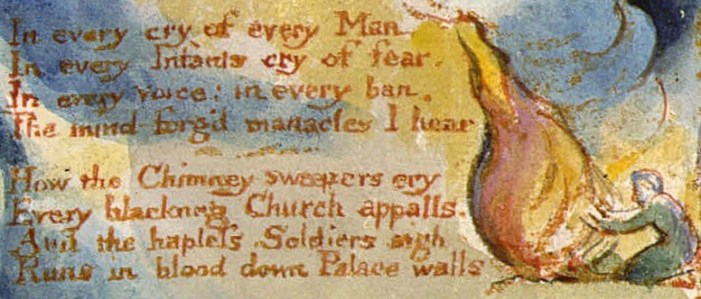 In every cry of every Man.
In every Infants cry of fear.
In every voice; in every ban.
The mind forg'd manacles I hear
How the Chimney sweepers cry
Every blackning Church appalls.
And the hapless Soldiers sigh
Runs in blood down Palace walls